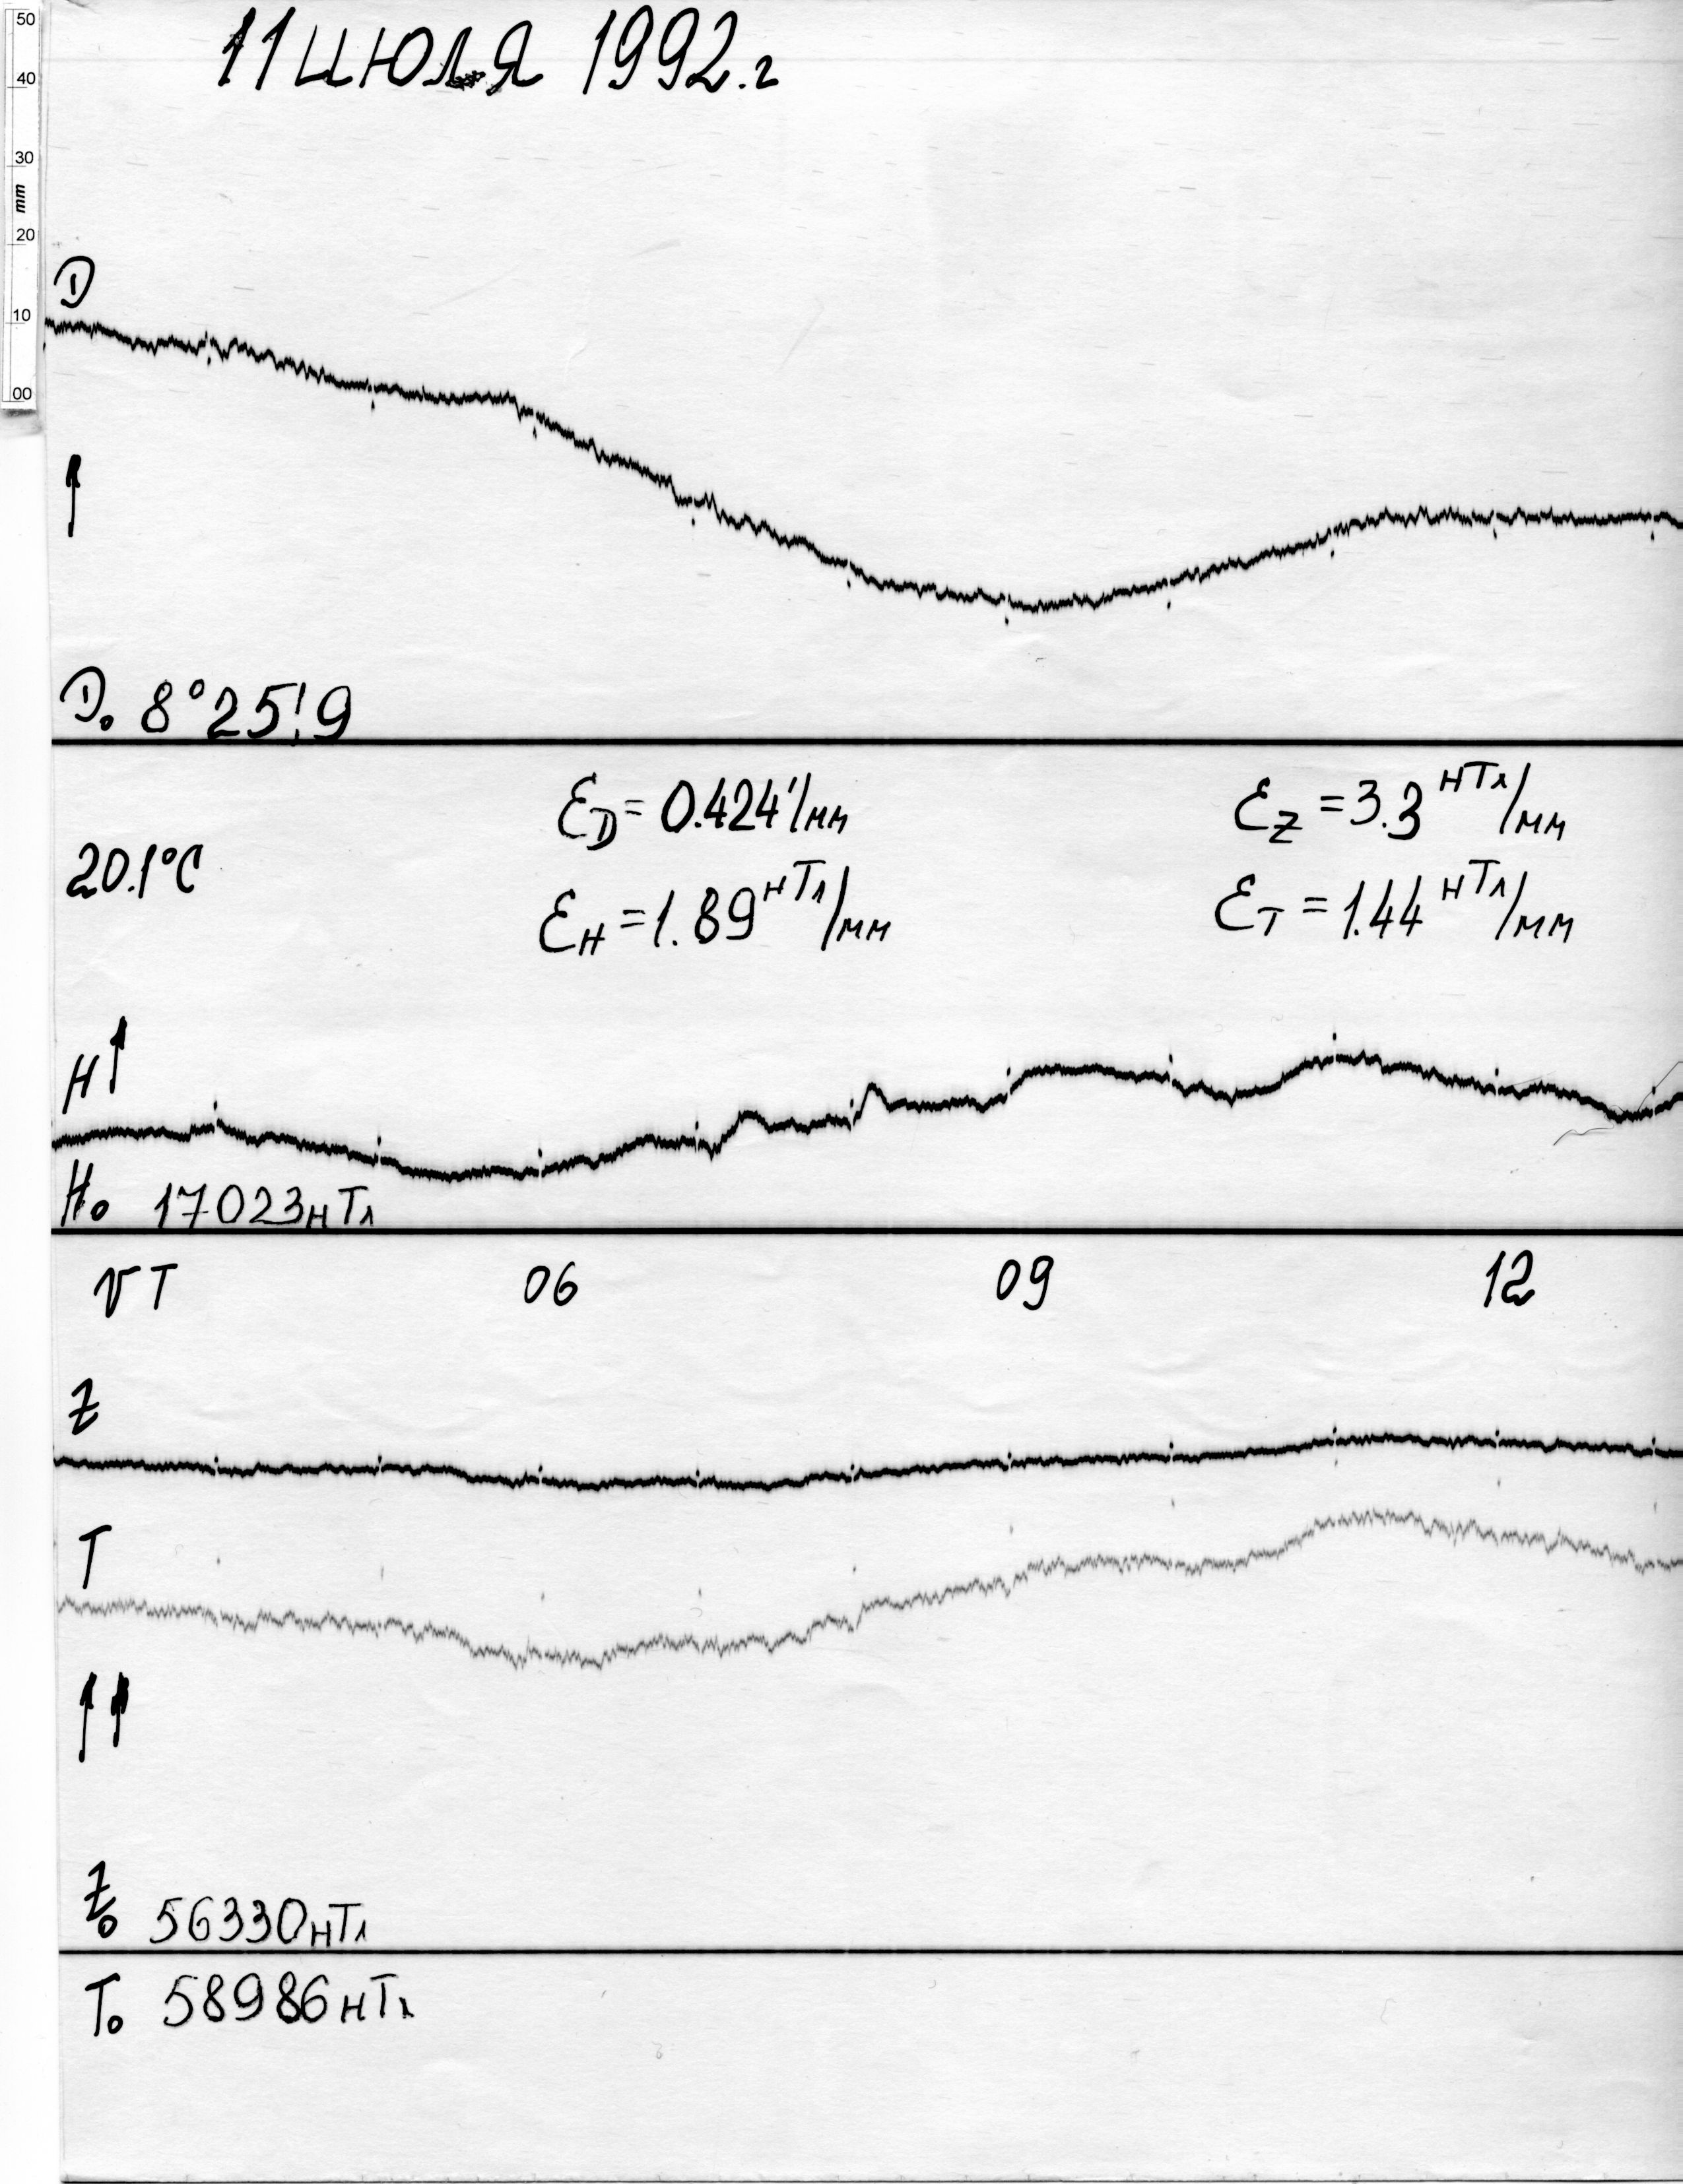 50
40
30
mm
20
10
00
11 июля 1992.г
D
D₀ 8°25!9
ε_D = 0.424'/мм
ε_Z = 3.3 нТл/мм
20.1°C
ε_H = 1.89 нТл/мм
ε_T = 1.44 нТл/мм
H
H₀ 17023нТл
UT 06 09 12
Z
T
Z₀ 56330нТл
T₀ 58986нТл